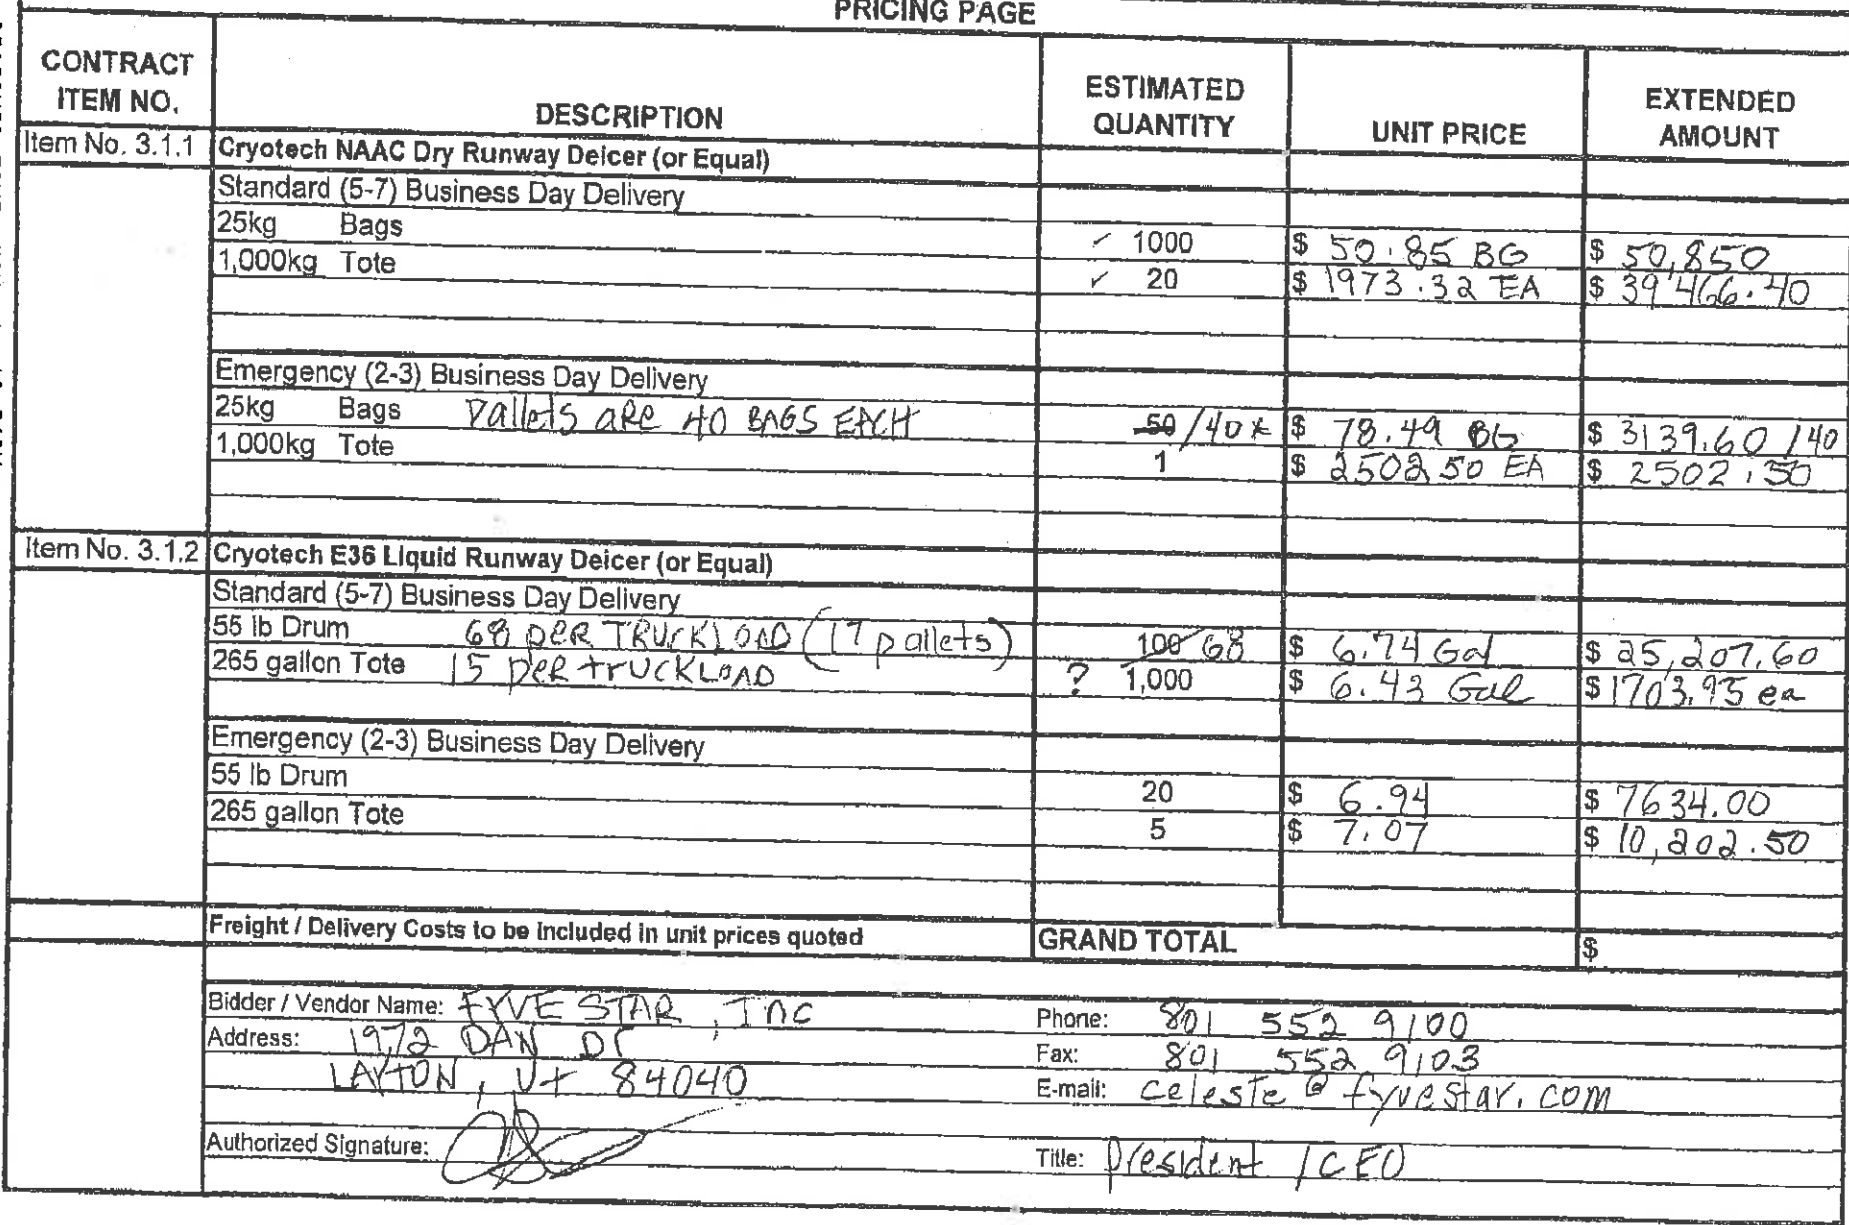 PRICING PAGE
CONTRACT ITEM NO. DESCRIPTION ESTIMATED QUANTITY UNIT PRICE EXTENDED AMOUNT
Item No. 3.1.1 Cryotech NAAC Dry Runway Deicer (or Equal)
Standard (5-7) Business Day Delivery
25kg Bags ✓ 1000 $ 50.85 BG $ 50,850
1,000kg Tote ✓ 20 $ 1973.32 EA $ 39466.40
Emergency (2-3) Business Day Delivery
25kg Bags Pallets are 40 BAGS EACH 50 /40* $ 78.49 BG $ 3139.60 /40
1,000kg Tote 1 $ 2502 50 EA $ 2502.50
Item No. 3.1.2 Cryotech E36 Liquid Runway Deicer (or Equal)
Standard (5-7) Business Day Delivery
55 lb Drum 68 PER TRUCKLOAD (17 pallets) 100 68 $ 6.74 Gal $ 25,207.60
265 gallon Tote 15 per truckLOAD ? 1,000 $ 6.43 Gal $1703.95 ea
Emergency (2-3) Business Day Delivery
55 lb Drum 20 $ 6.94 $ 7634.00
265 gallon Tote 5 $ 7.07 $ 10,202.50
Freight / Delivery Costs to be included in unit prices quoted GRAND TOTAL $
Bidder / Vendor Name: FYVE STAR, Inc Phone: 801 552 9100
Address: 1972 DAN Dr Fax: 801 552 9103
LAYTON, Ut 84040 E-mail: celeste@fyvestar.com
Authorized Signature: Title: President / CEO